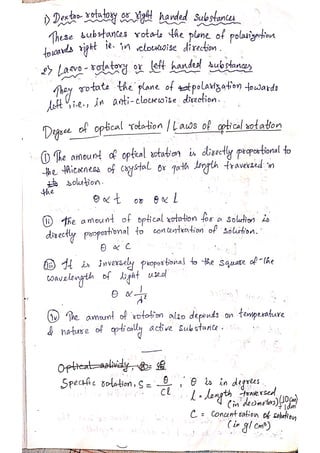 1) Dextro-rotatory or right handed substances
These substances rotate the plane of polarization
towards right ie. in clockwise direction.
2) Laevo-rotatory or left handed substances
They rotate the plane of polarization towards
left, i.e., in anti-clockwise direction.
Degree of optical rotation / Laws of optical rotation
(i) The amount of optical rotation is directly proportional to
the thickness of crystal or path length traversed in
the solution.
θ ∝ t or θ ∝ l
(ii) The amount of optical rotation for a solution is
directly proportional to concentration of solution.
θ ∝ C
(iii) It is inversely proportional to the square of the
wavelength of light used
θ ∝ 1/λ²
(iv) The amount of rotation also depends on temperature
& nature of optically active substance.
Optical activity,
Specific rotation, S = θ/Cl ; θ is in degrees
l = length traversed
(in decimeters) (10cm = 1dm)
C = concentration of solution
(in g/cm³)